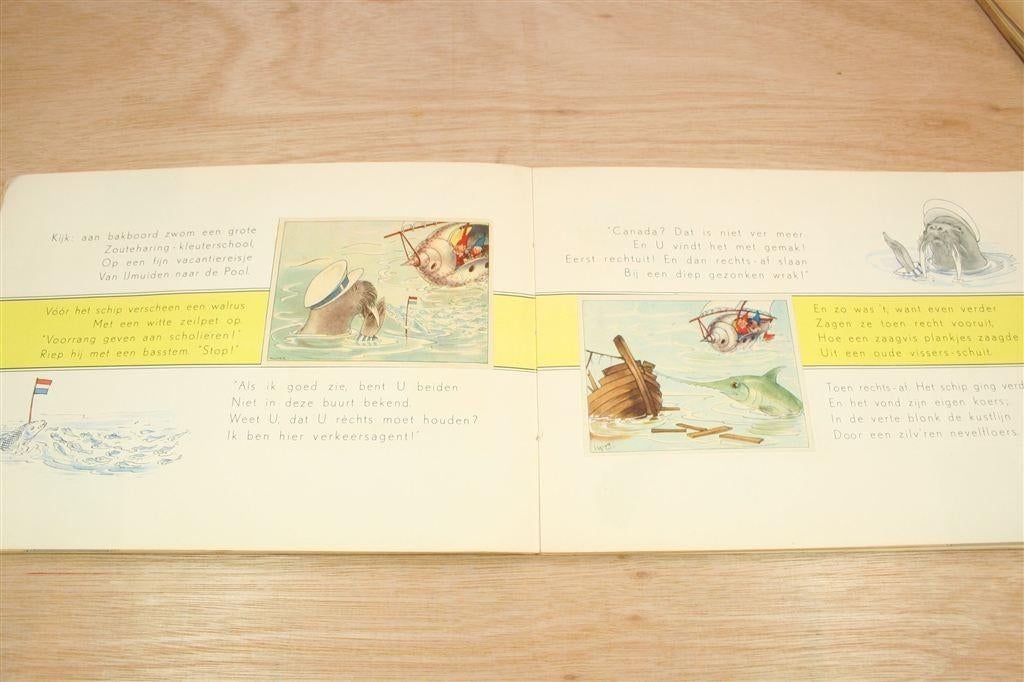 Kijk: aan bakboord zwom een grote
Zouteharing-kleuterschool,
Op een fijn vacantiereisje
Van IJmuiden naar de Pool.
Vóór het schip verscheen een walrus
Met een witte zeilpet op.
"Voorrang geven aan scholieren!"
Riep hij met een basstem. "Stop!"
"Als ik goed zie, bent U beiden
Niet in deze buurt bekend.
Weet U, dat U rèchts moet houden?
Ik ben hier verkeersagent!"
"Canada? Dat is niet ver meer
En U vindt het met gemak!
Eerst rechtuit! En dan rechts-af slaan
Bij een diep gezonken wrak!"
En zo was 't, want even verder
Zagen ze toen recht vooruit,
Hoe een zaagvis plankjes zaagde
Uit een oude vissers-schuit.
Toen rechts-af. Het schip ging verd
En het vond zijn eigen koers;
In de verte blonk de kustlijn
Door een zilv'ren nevelfloers.